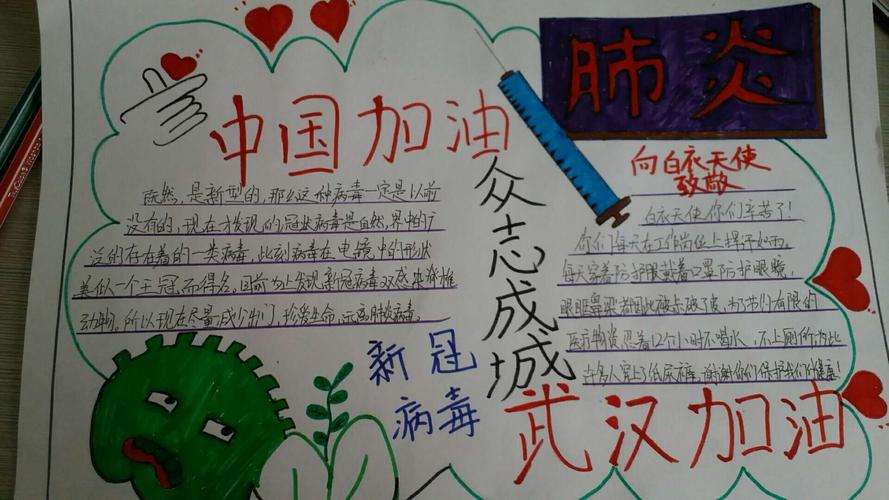 中国加油
既然,是新型的,那么这种病毒一定是以前
没有的,现在才发现的冠状病毒是自然,界中的广
泛的存在着的一类病毒,此刻病毒在电镜中的形状
美似一个王冠,不得名。目前为止发现,新冠病毒 感染脊椎
动物。所以现在尽量减少出门,珍爱生命,远离肺炎病毒。
新冠
病毒
众志成城
肺炎
向白衣天使
致敬
白衣天使,你们辛苦了!
你们每天在工作岗位上挥汗如雨。
每天穿着防护服戴着口罩防护眼镜,
眼眶鼻梁都因此被 破了皮,为了节约有限的
医疗物资,忍着12个小时不喝水,不上厕所,为此
许多人穿上了纸尿裤,谢谢你们保护我们的健康!
武汉加油